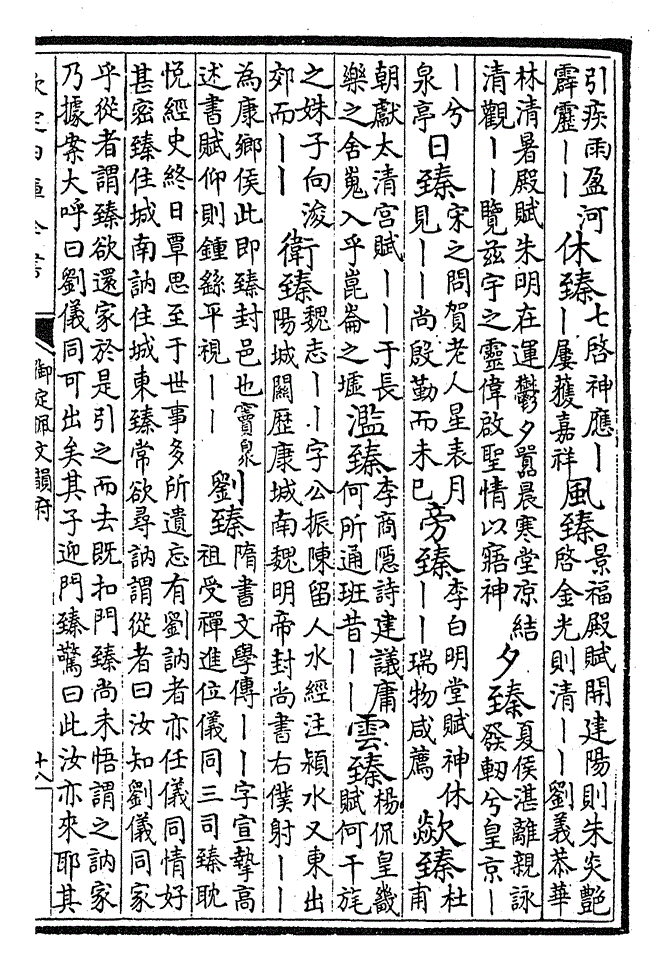 引疾雨盈河
霹靂丨丨
休臻
七啓神應丨
丨屢獲嘉祥
風臻
景福殿賦開建陽則朱炎艷
啓金光則清丨丨劉義恭華
林清暑殿賦朱明在運鬱夕翳晨寒堂凉結
清觀丨丨覽兹宇之靈偉啟聖情以寤神
夕臻
夏侯湛離親詠
發軔兮皇京丨
丨兮
泉亭
日臻
宋之問賀老人星表月
見丨丨尚殷勤而未已
旁臻
李白明堂賦神休
丨丨瑞物咸薦
歘臻
杜
甫
朝獻太清宫賦丨丨于長
樂之舍嵬入乎崑崙之墟
濫臻
李商隱詩建議庸
何所通班昔丨丨
雲臻
楊侃皇畿
賦何干旄
之姝子向浚
郊而丨丨
衛臻
魏志丨丨字公振陳留人水經注潁水又東出
陽城關歷康城南魏明帝封尚書右僕射丨丨
為康鄉侯此即臻封邑也竇泉
述書賦仰則鍾繇平視丨丨
劉臻
隋書文學傳丨丨字宣摯高
祖受禪進位儀同三司臻耽
悅經史終日覃思至于世事多所遺忘有劉訥者亦任儀同情好
甚密臻住城南訥住城東臻常欲尋訥謂從者曰汝知劉儀同家
乎從者謂臻欲還家於是引之而去既扣門臻尚未悟謂之訥家
乃據案大呼曰劉儀同可出矣其子迎門臻驚曰此汝亦來耶其
欽定四庫全書
御定佩文韻府
十八